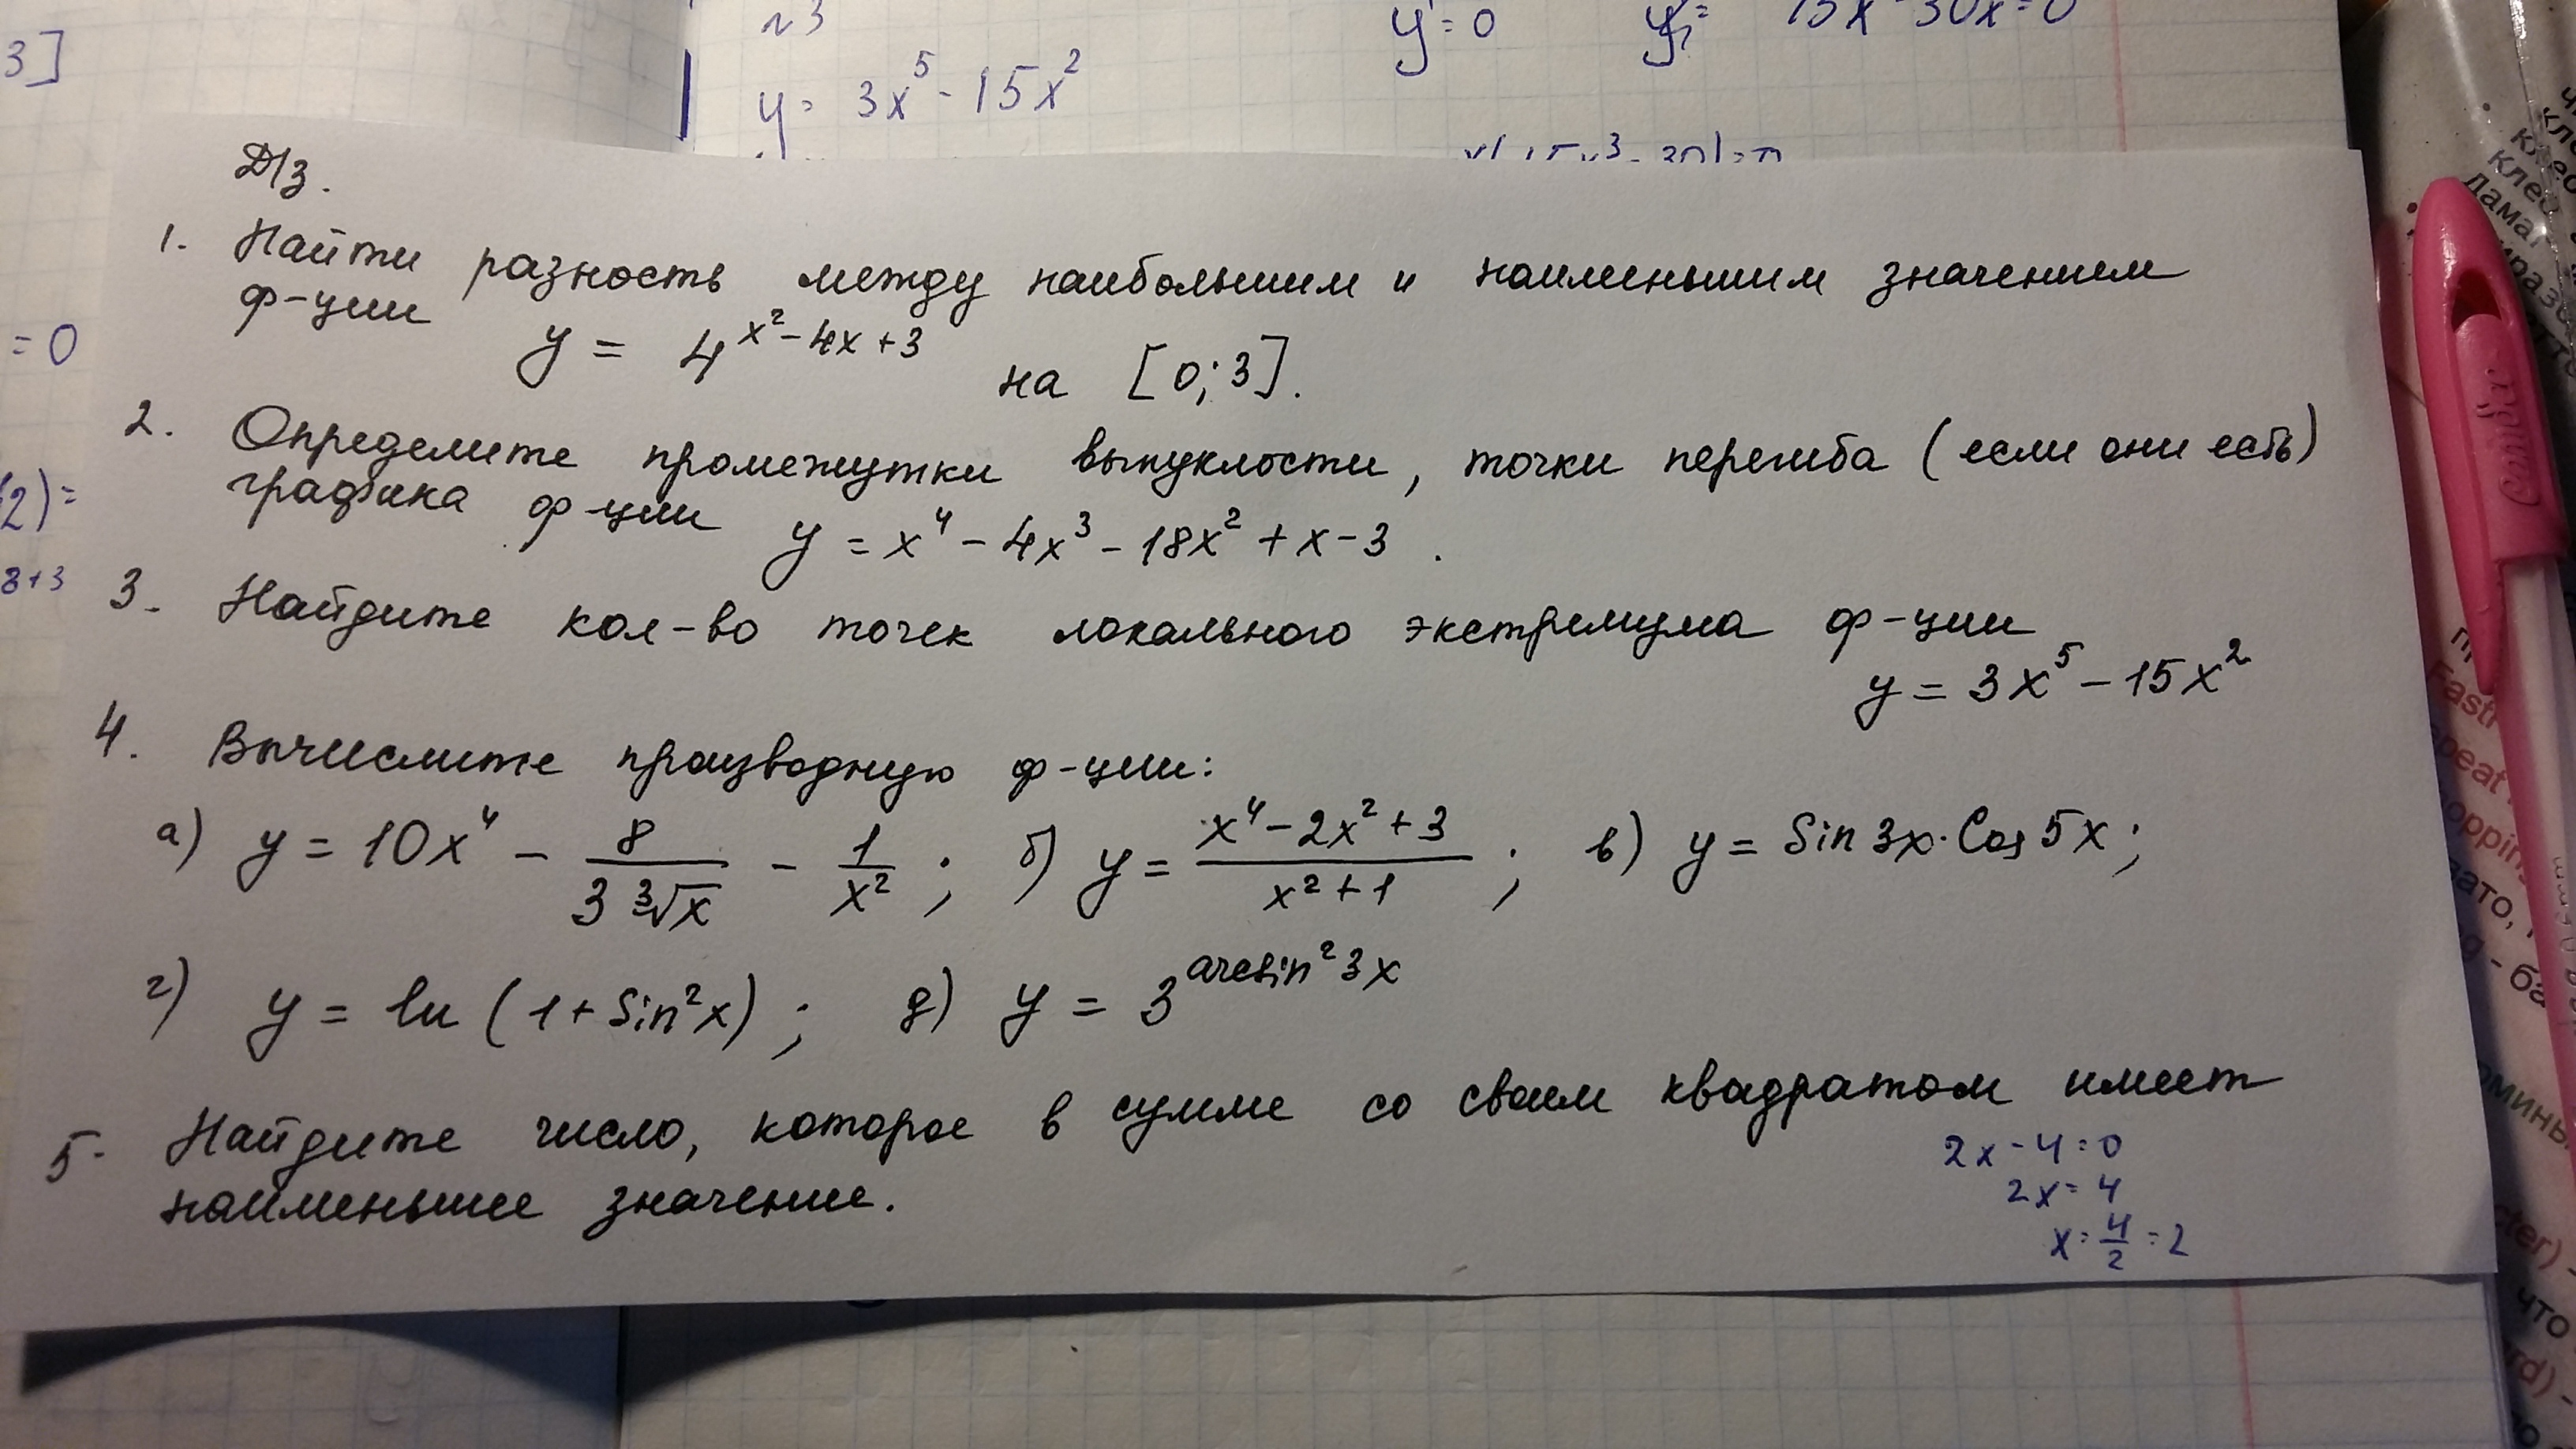 3]
= 0
(2) =
8+3
№3
y = 3x⁵ - 15x²
y' = 0
15x⁴ - 30x = 0
Д/з.
1. Найти разность между наибольшим и наименьшим значением
ф-ции y = 4^(x² - 4x + 3) на [0; 3].
2. Определите промежутки выпуклости, точки перегиба (если они есть)
графика ф-ции y = x⁴ - 4x³ - 18x² + x - 3.
3. Найдите кол-во точек локального экстремума ф-ции
y = 3x⁵ - 15x²
4. Вычислите производную ф-ции:
а) y = 10x⁴ - 8/(3∛x) - 1/x²; б) y = (x⁴ - 2x² + 3)/(x² + 1); в) y = Sin 3x · Cos 5x;
г) y = ln (1 + Sin²x); д) y = 3^(arcsin² 3x)
5. Найдите число, которое в сумме со своим квадратом имеет
наименьшее значение.
2x - 4 = 0
2x = 4
x = 4/2 = 2